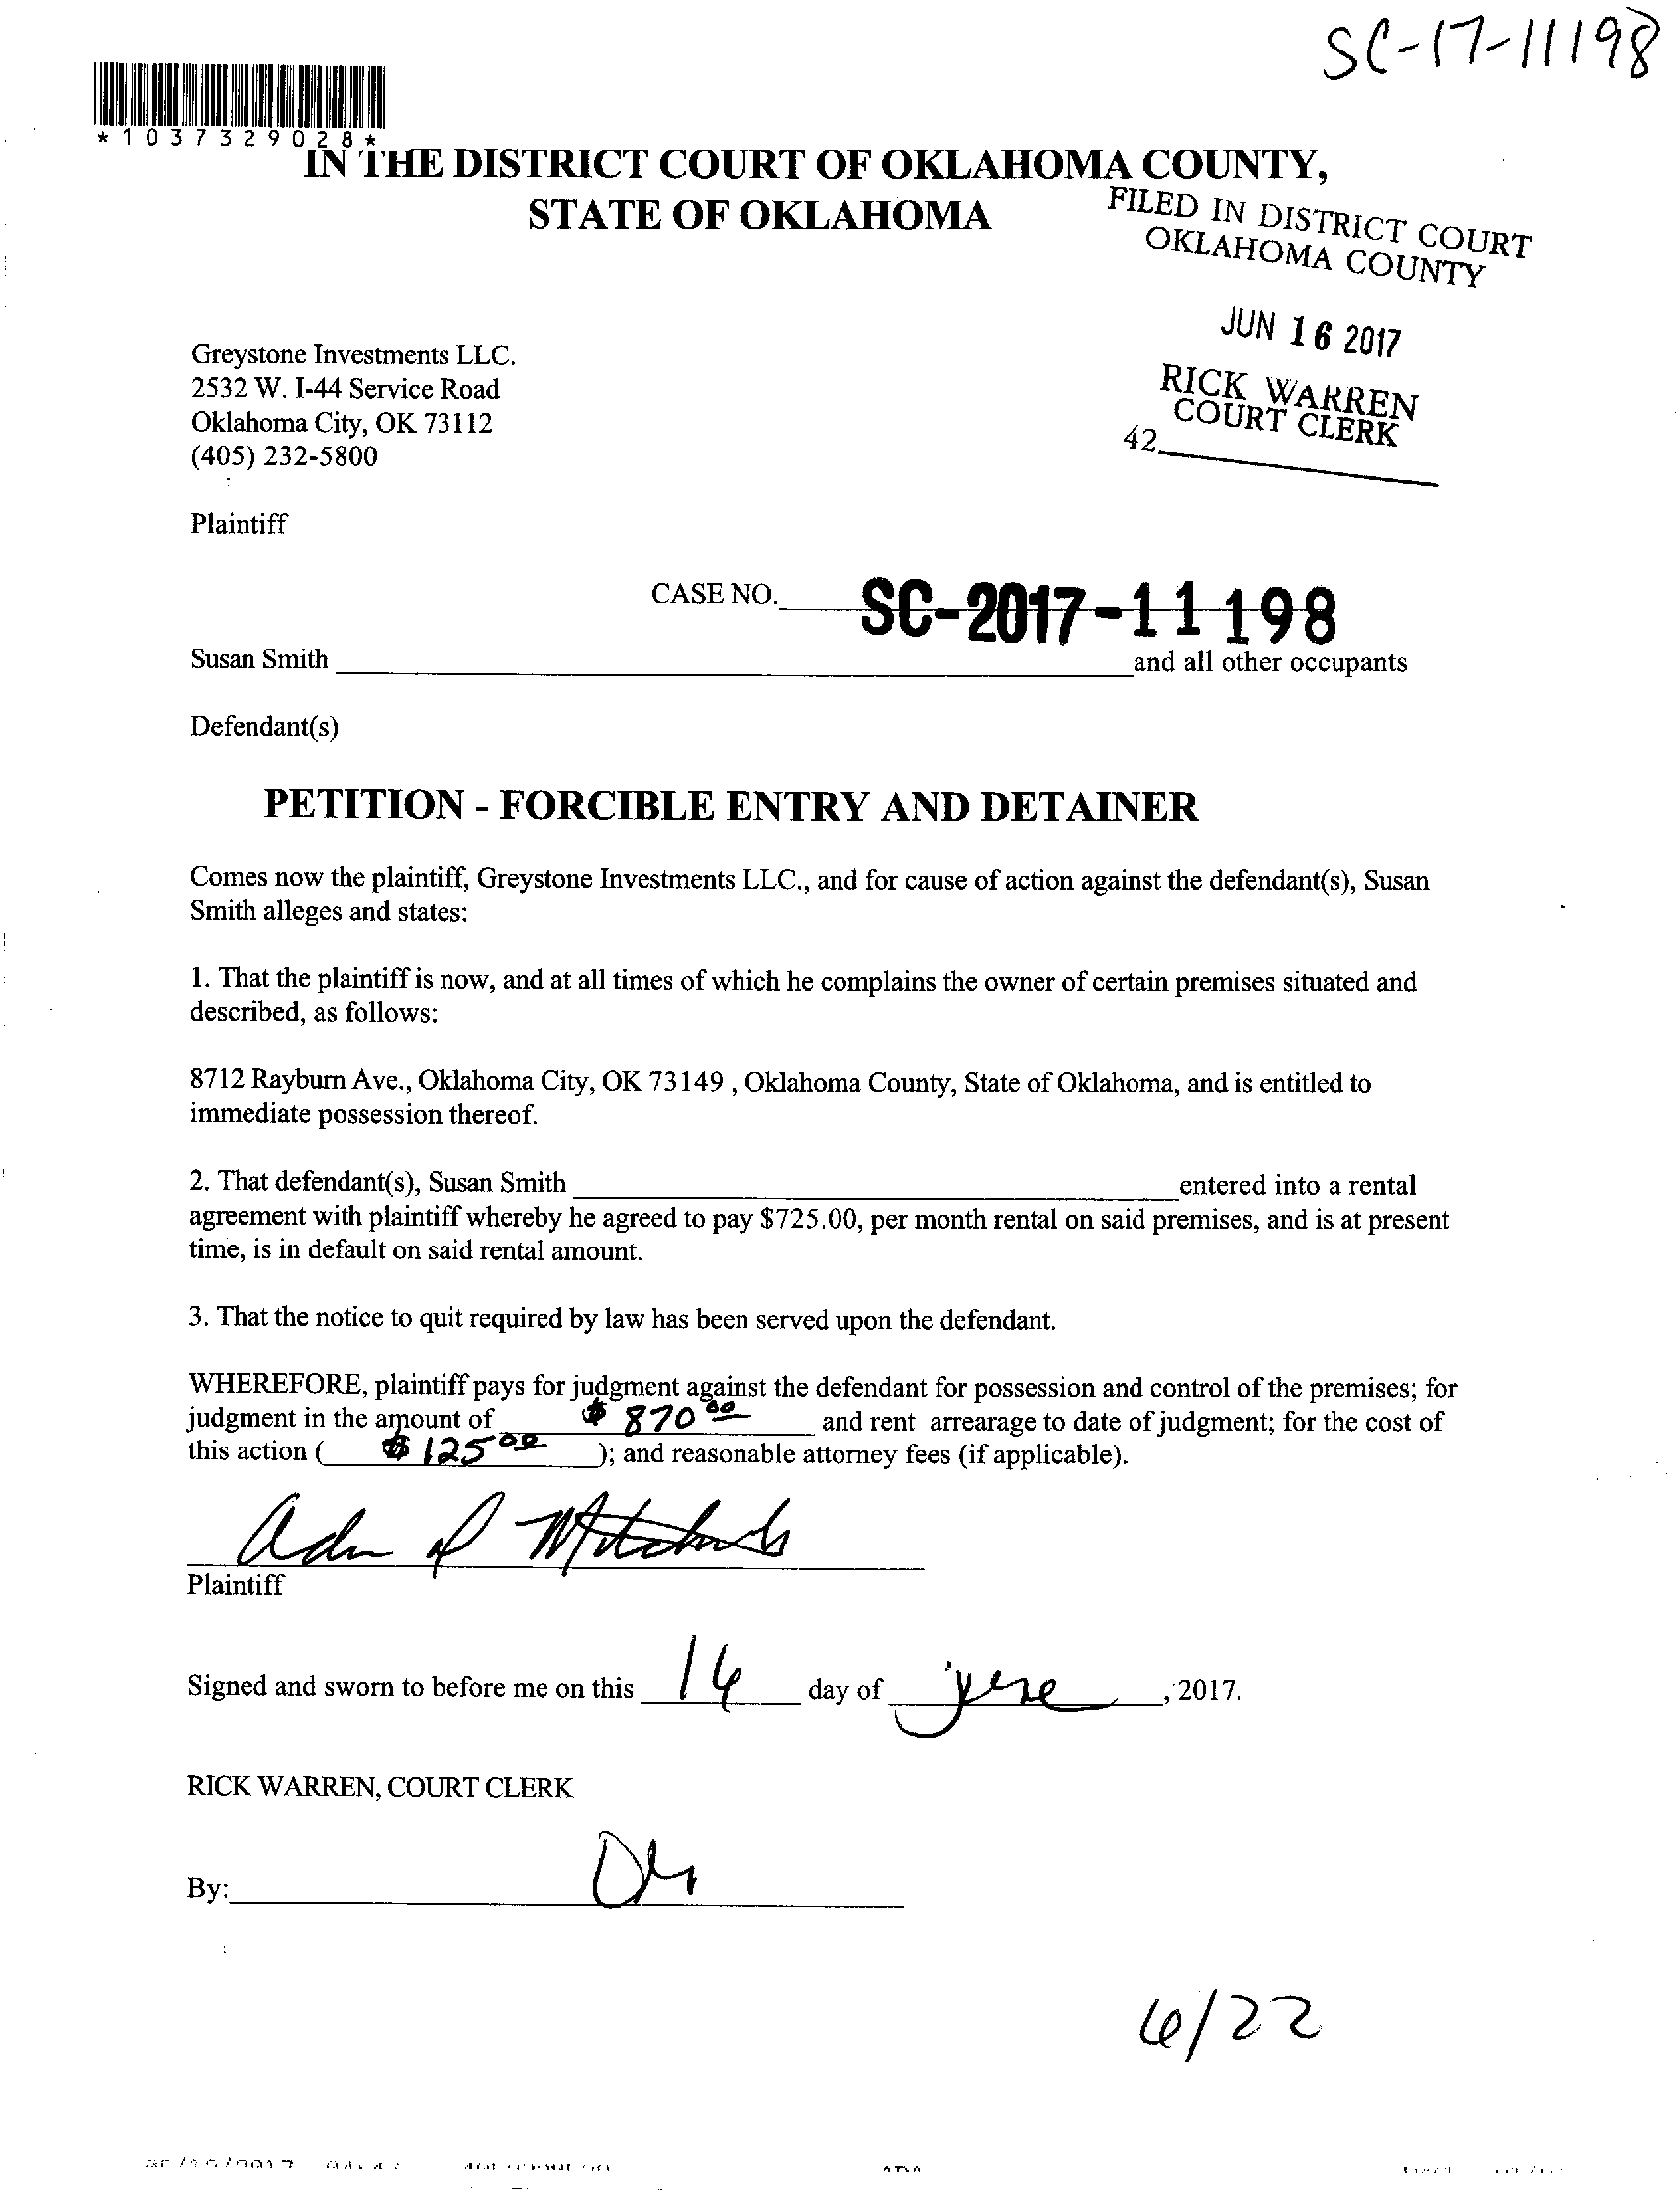 SC-17-11198
*1037329028*
IN THE DISTRICT COURT OF OKLAHOMA COUNTY,
STATE OF OKLAHOMA
FILED IN DISTRICT COURT
OKLAHOMA COUNTY
JUN 16 2017
RICK WARREN
COURT CLERK
42
Greystone Investments LLC.
2532 W. I-44 Service Road
Oklahoma City, OK 73112
(405) 232-5800
Plaintiff
CASE NO. SC-2017-11198
Susan Smith and all other occupants
Defendant(s)
PETITION - FORCIBLE ENTRY AND DETAINER
Comes now the plaintiff, Greystone Investments LLC., and for cause of action against the defendant(s), Susan
Smith alleges and states:
1. That the plaintiff is now, and at all times of which he complains the owner of certain premises situated and
described, as follows:
8712 Rayburn Ave., Oklahoma City, OK 73149 , Oklahoma County, State of Oklahoma, and is entitled to
immediate possession thereof.
2. That defendant(s), Susan Smith entered into a rental
agreement with plaintiff whereby he agreed to pay $725.00, per month rental on said premises, and is at present
time, is in default on said rental amount.
3. That the notice to quit required by law has been served upon the defendant.
WHEREFORE, plaintiff pays for judgment against the defendant for possession and control of the premises; for
judgment in the amount of $ 870 00 and rent arrearage to date of judgment; for the cost of
this action ( $ 125 00 ); and reasonable attorney fees (if applicable).
Plaintiff
Signed and sworn to before me on this 16 day of june , 2017.
RICK WARREN, COURT CLERK
By:
6/22